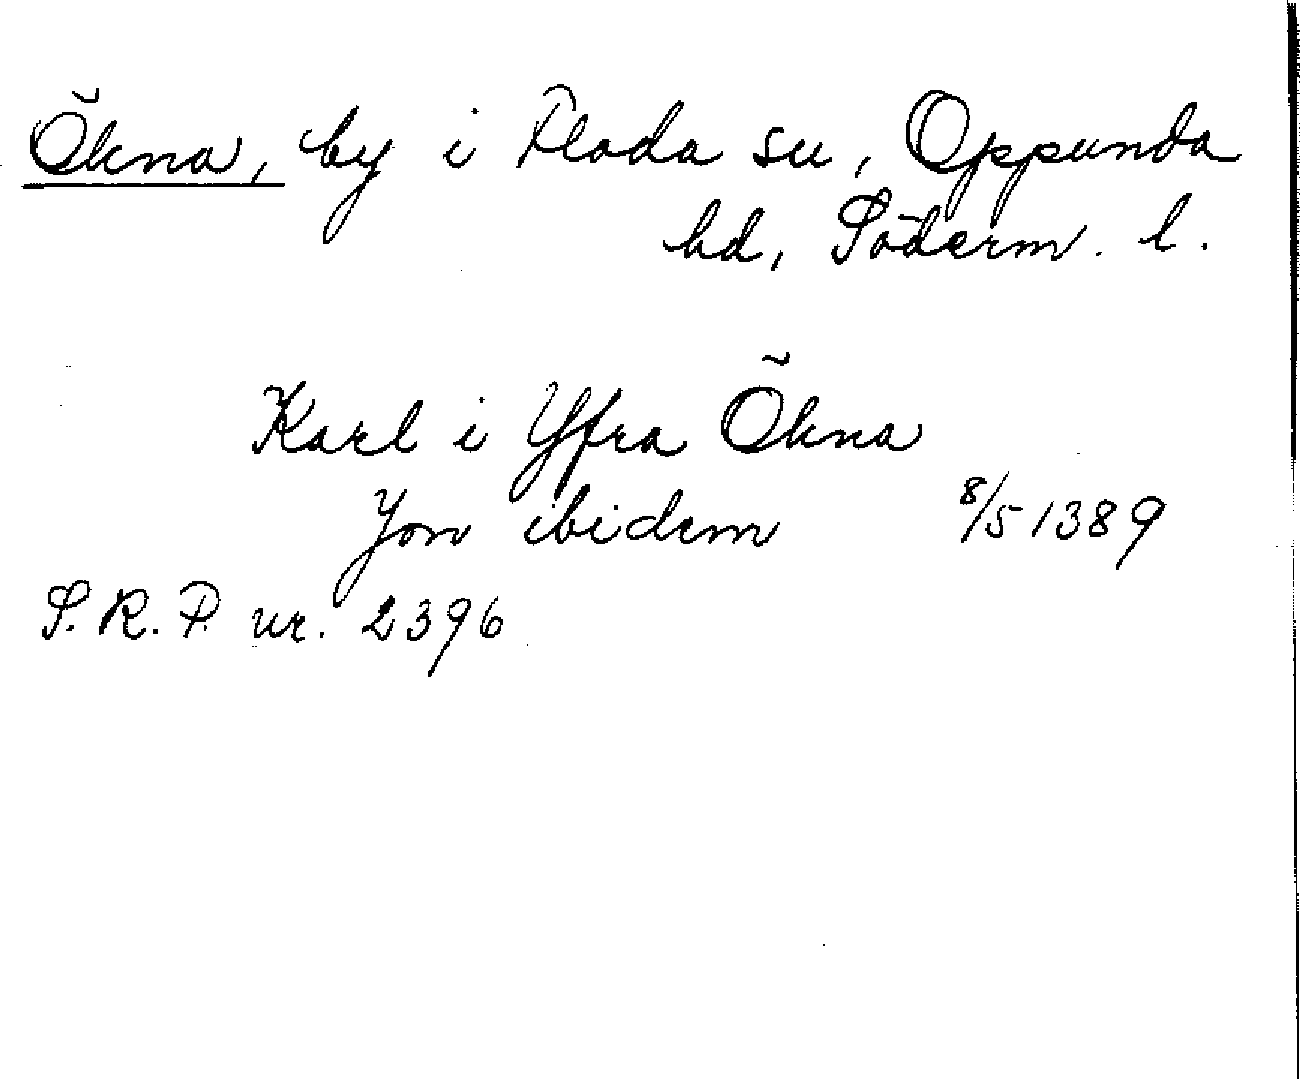 Ökna, by i Floda sn, Oppunda
hd, Söderm. l.
Karl i Yfra Ökna
Jon ibidem 8/5 1389
S.R.P. nr. 2396